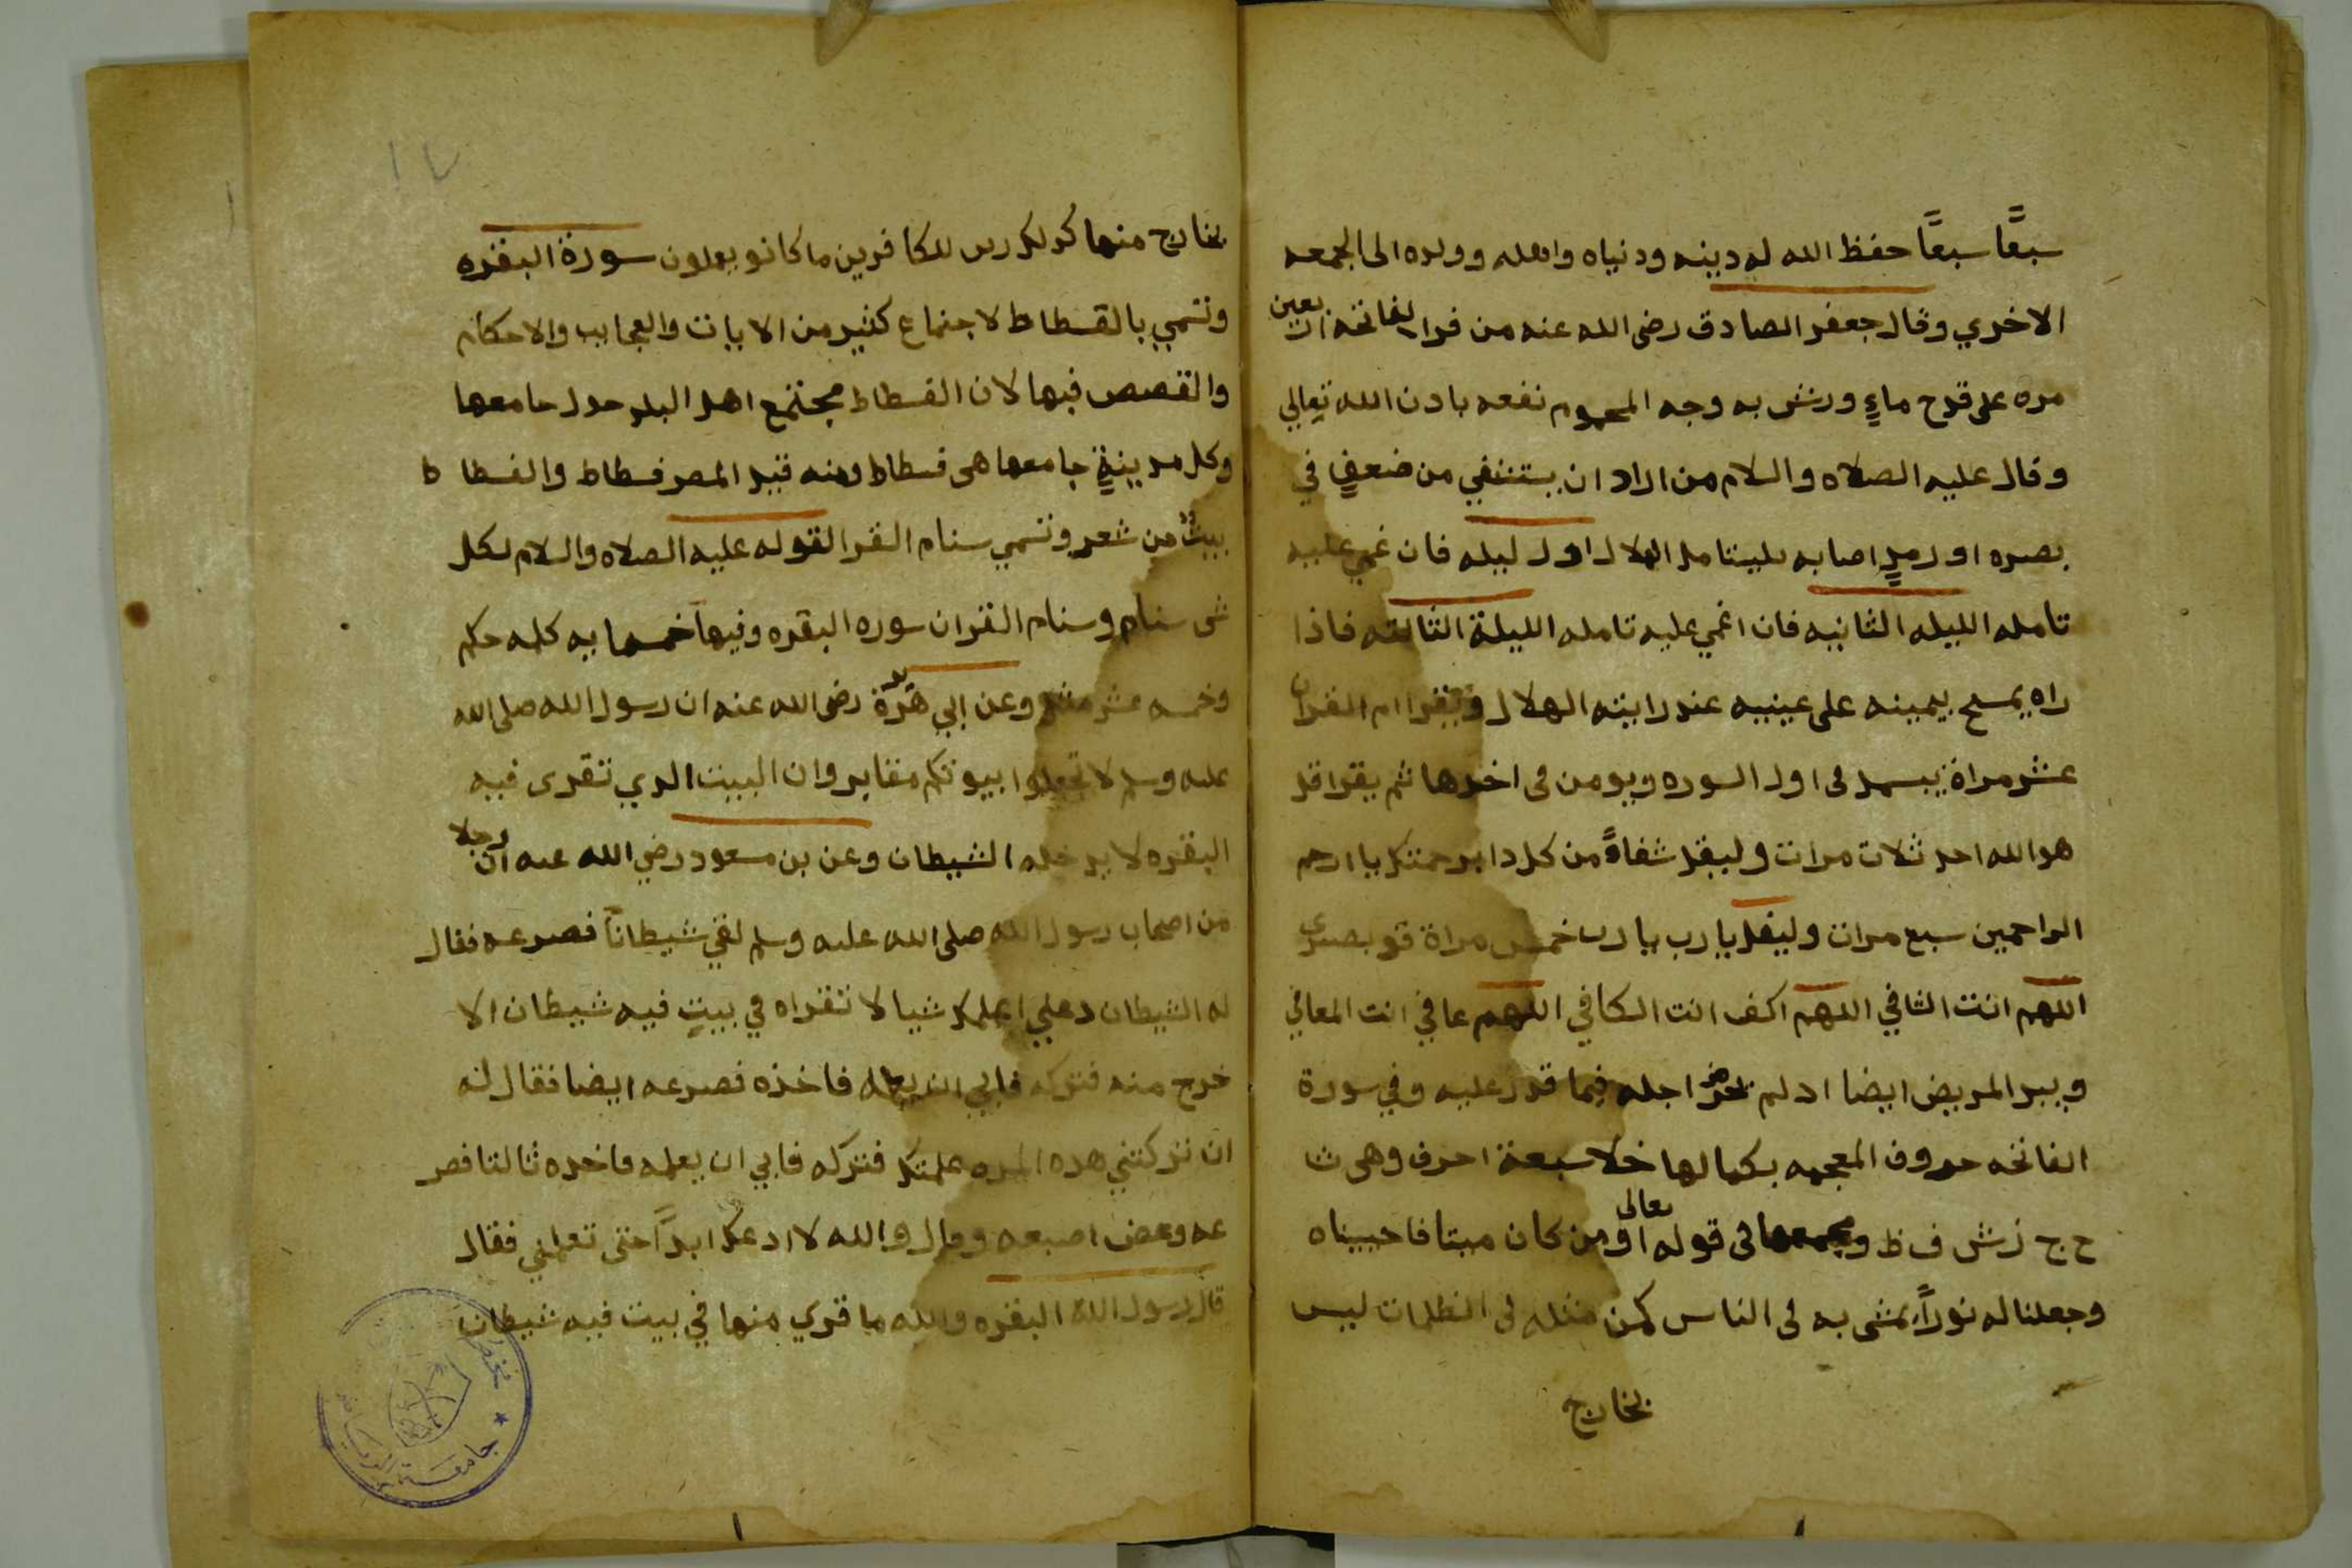 سبعًّا سبعًّا حفظ الله له دينه ودنياه واهله وولده الى الجمعه
الاخري وقال جعفر الصادق رضى الله عنه من قرا الفاتحه اربعين
مره على قدح ماءٍ ورش به وجه المحموم نفعه بادن الله تعالي
وقال عليه الصلاه والسلام من اراد ان يستشفي من ضعفٍ في
بصره او رمدٍ اصابه فليتامل الهلال اول ليله فان غمي عليه
تامله الليله الثانيه فان اغمي عليه تامله الليلة الثالثه فاذا
راه يمسح بيمينه على عينيه عند رايته الهلال ويقرا ام القران
عشر مراة يبسمل فى اول السوره ويومن فى اخرها ثم يقرا قل
هو الله احد ثلاث مرات وليقل شفاءً من كل دا برحمتك يا ارحم
الراحمين سبع مرات وليقل يا رب يا رب خمس مراة قو بصري
اللهم انت الشافي اللهم اكف انت الكافي اللهم عافي انت المعافي
ويبر المريض ايضا اد لم اجله فيما قدر عليه وفي سورة
الفاتحه حروف المعجمه بكمالها خلا سبعة احرف وهى ث
ح ج ز ش ف ظ ويجمعها فى قوله تعالى او من كان ميتا فاحييناه
وجعلنا له نوراً يمشى به فى الناس كمن مثله فى الظلمات ليس
بخارج
١٧
بخارج منها كدلك زين للكافرين ما كانو يعملون سورة البقره
وتسمي بالفسطاط لاجتماع كثير من الايات والعجايب والاحكام
والقصص فيها لان الفسطاط مجتمع اهل البلد حول جامعها
وكل مدينةٍ جامعها هى فسطاط ومنه قيل المصر فسطاط والفسطا ط
بيتٌ من شعر وتسمي سنام القرا لقوله عليه الصلاه والسلام لكل
شى سنام وسنام القران سوره البقره وفيها خمسمايه كلمه حكم
وخمسه عشر مثل وعن ابي هريرة رضى الله عنه ان رسول الله صلى الله
عليه وسلم لا تجعلوا بيوتكم مقابر وان البيت الدي تقرى فيه
البقره لا يدخله الشيطان وعن بن مسعود رضي الله عنه ان رجلا
من اصحاب رسول الله صلى الله عليه وسلم لقي شيطاناً فصرعه فقال
له الشيطان دعني اعلمك شيا لا تقراه في بيتٍ فيه شيطان الا
خرج منه فتركه فابي ان يعلمه فاخذه فصرعه ايضا فقال له
ان تركتني هده المره علمتك فتركه فابي ان يعلمه فاخده ثالثا فصر
عه وعض اصبعه وقال والله لا ادعك ابداً حتى تعلمني فقال
قال رسول الله البقره والله ما قري منها في بيت فيه شيطان
جامعة الرياض